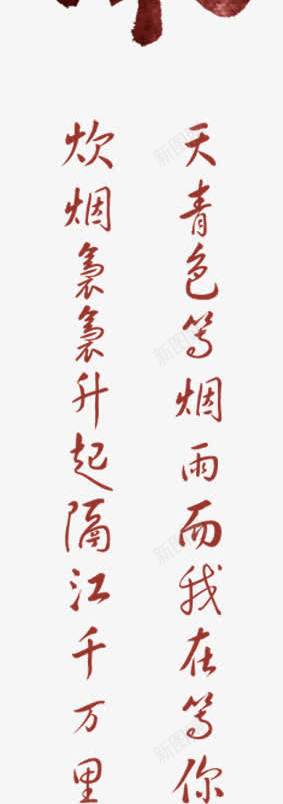 天青色等烟雨而我在等你
炊烟袅袅升起隔江千万里